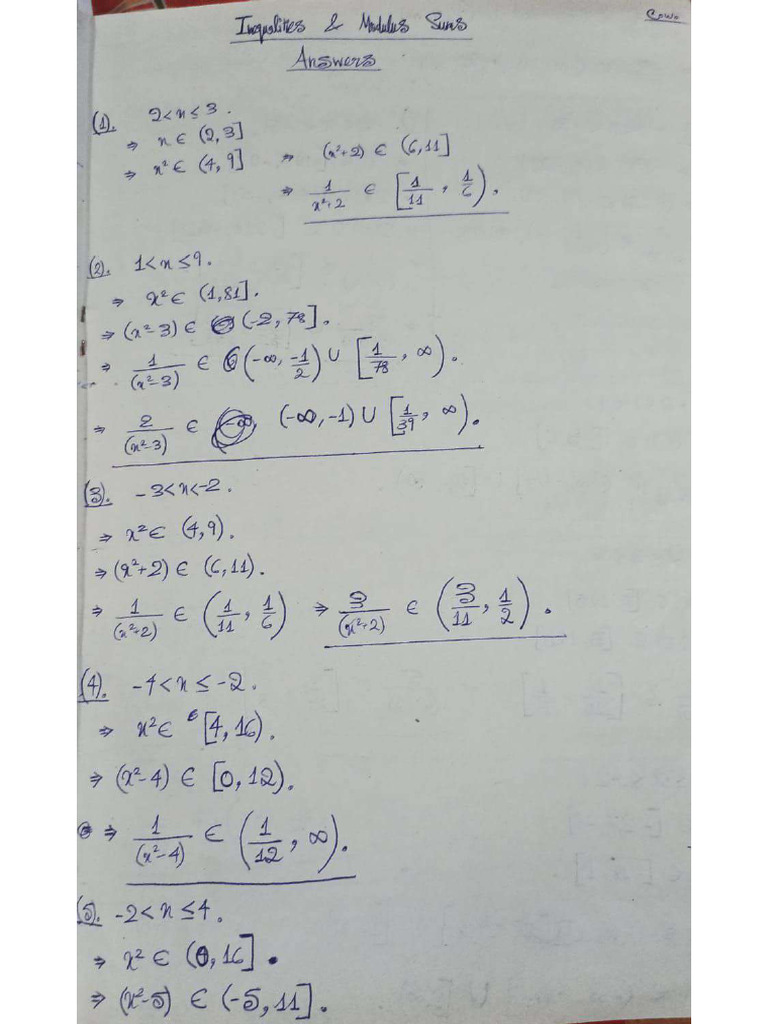 C.W.
Inequalities & Modulus Sums
Answers
(1). 2<x≤3.
⇒ x ∈ (2,3]
⇒ x² ∈ (4,9] ⇒ (x²+2) ∈ (6,11]
⇒ 1/(x²+2) ∈ [1/11, 1/6).
(2). 1<x≤9.
⇒ x² ∈ (1,81].
⇒ (x²-3) ∈ (-2,78].
⇒ 1/(x²-3) ∈ (-∞, -1/2) ∪ [1/78, ∞).
⇒ 2/(x²-3) ∈ (-∞,-1) ∪ [1/39, ∞).
(3). -3<x<-2.
⇒ x² ∈ (4,9).
⇒ (x²+2) ∈ (6,11).
⇒ 1/(x²+2) ∈ (1/11, 1/6) ⇒ 3/(x²+2) ∈ (3/11, 1/2).
(4). -4<x≤-2.
⇒ x² ∈ [4,16).
⇒ (x²-4) ∈ [0,12).
⇒ 1/(x²-4) ∈ (1/12, ∞).
(5). -2<x≤4.
⇒ x² ∈ (0,16].
⇒ (x²-5) ∈ (-5,11].